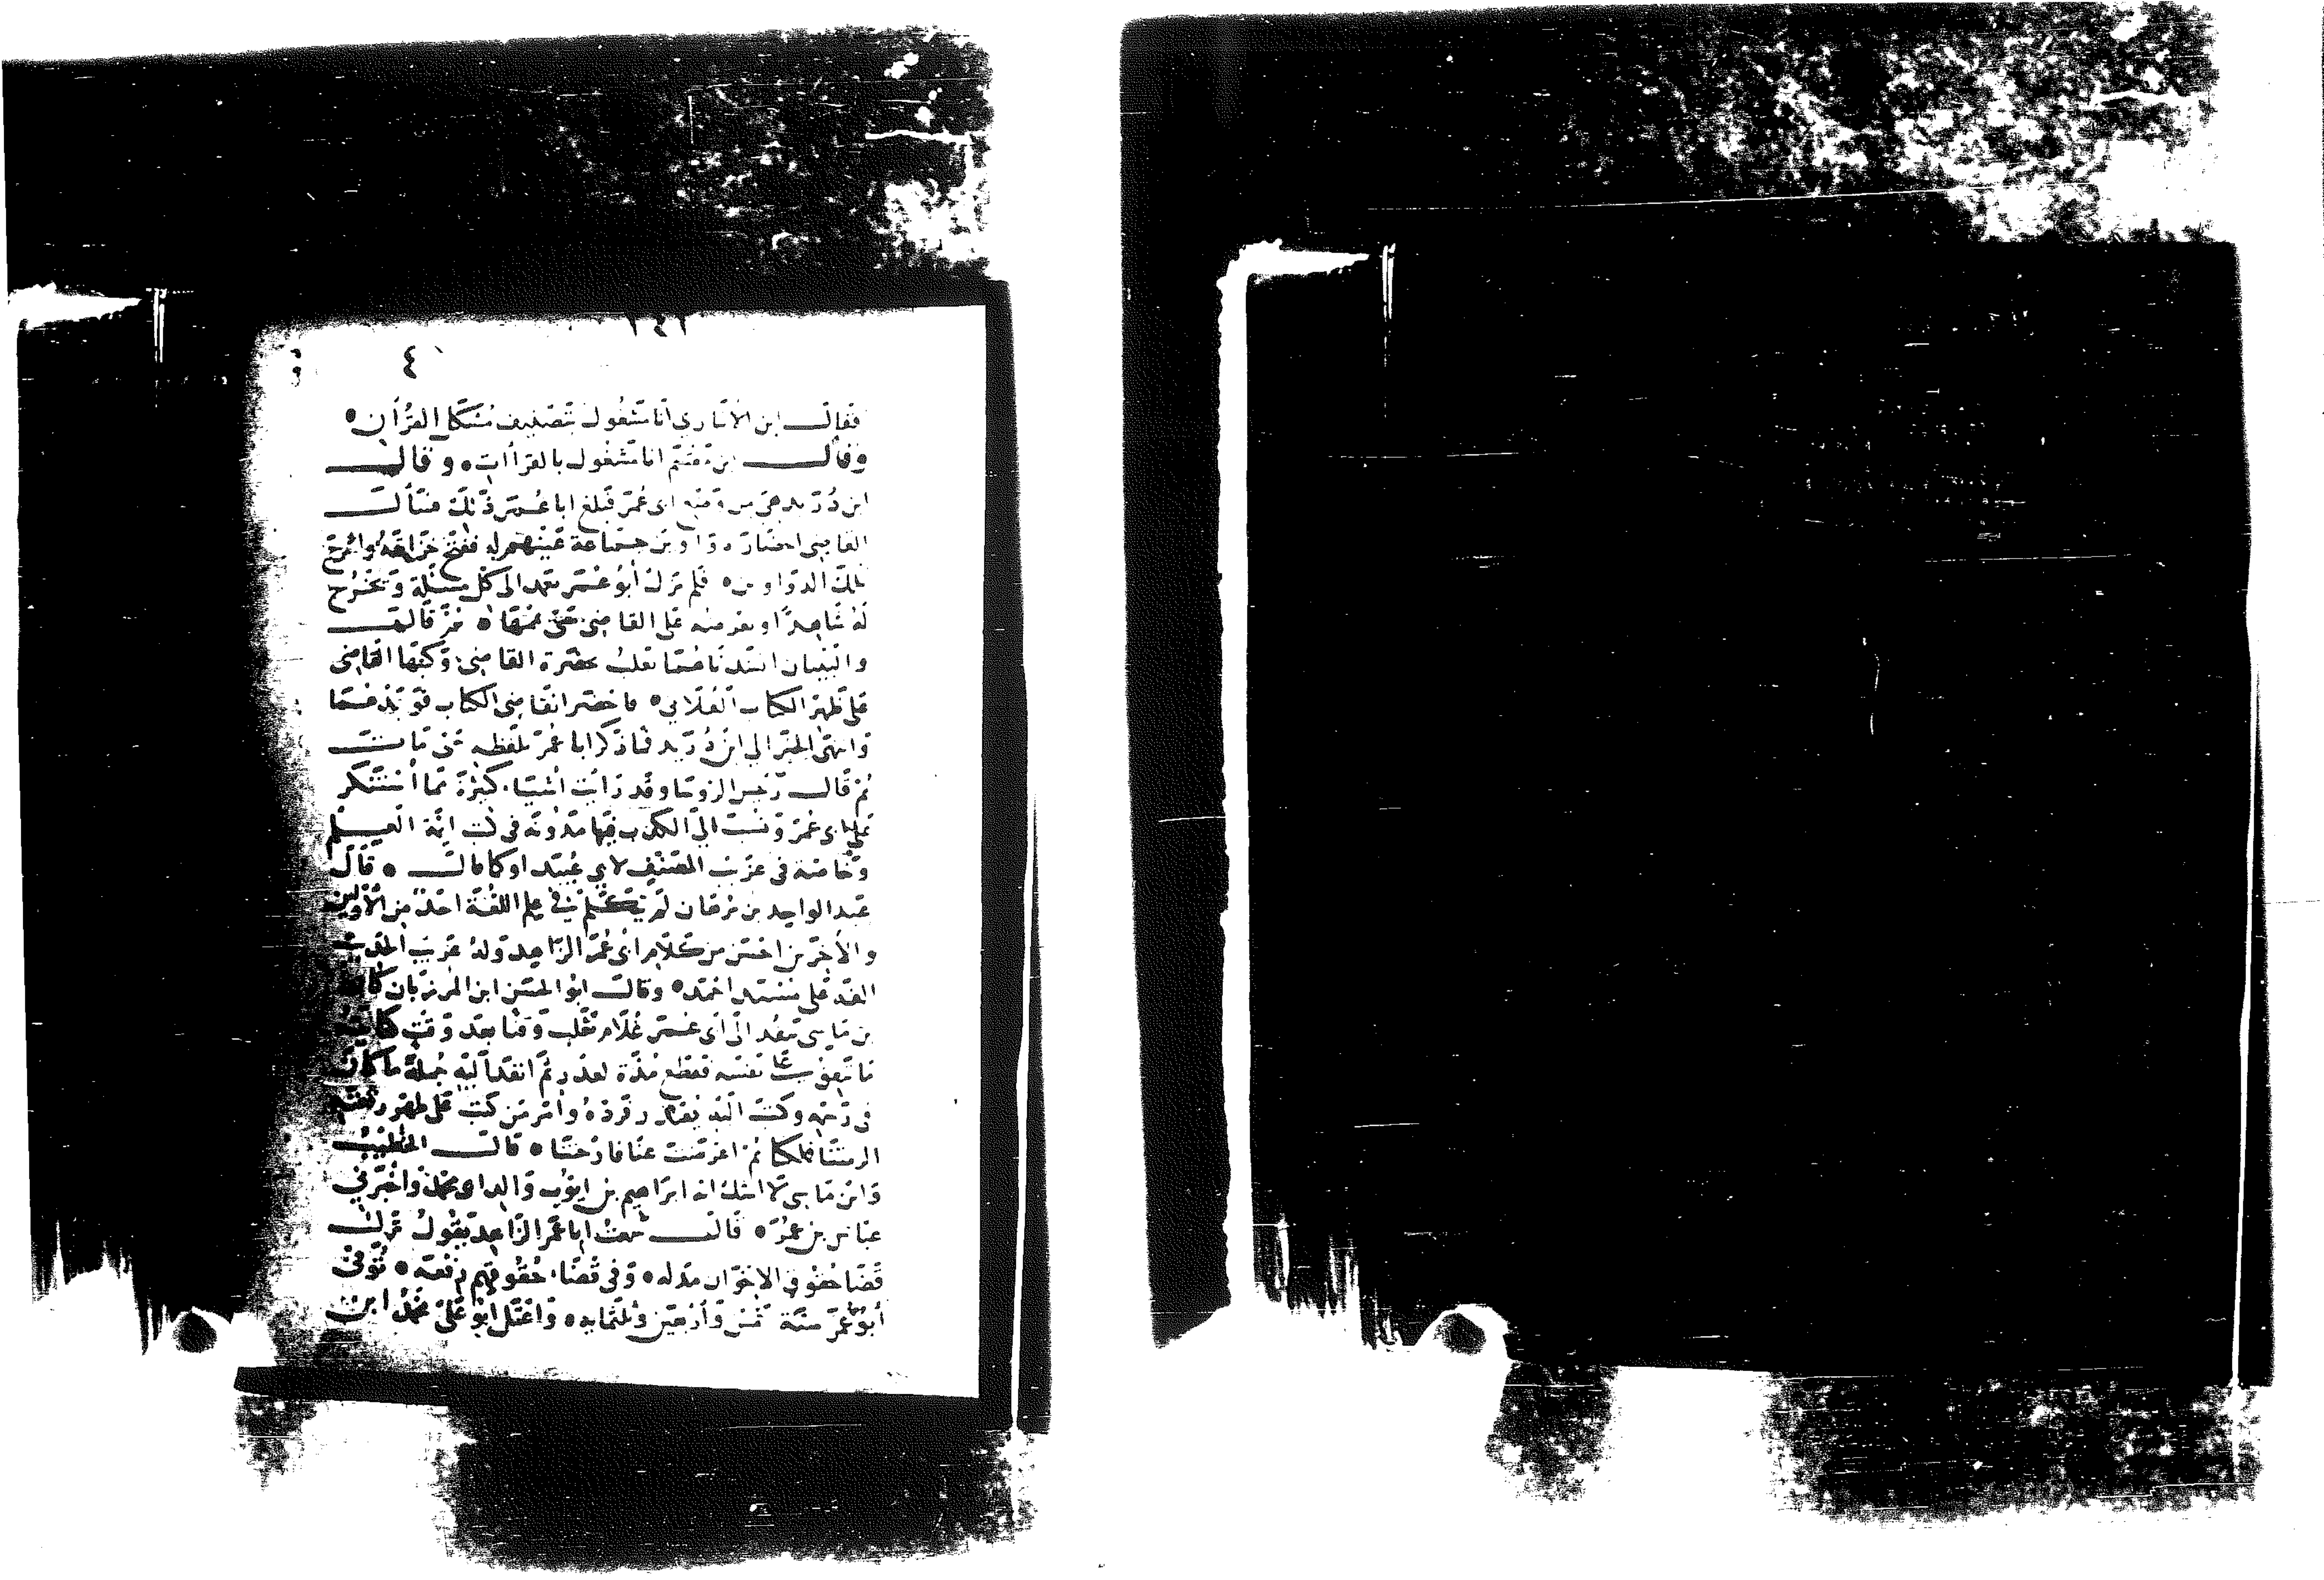 ٢٤٢
٤
فقال ابن الانباري انا مشغول بتصنيف مشكل القرآن ٥
وقال ابن مقسم انا مشغول بالقراات ٥ وقال
ابن دريد هي من وضع ابي عمر فبلغ ابا عمر ذلك فسأل
القاضي احضار دواوين جماعة عينهم له ففتح خزانته واخرج
تلك الدواوين ٥ فلم يزل أبو عمر يعمد الى كل مسئلة ويخرج
له شاهدا ويعرضه على القاضي حتى تممها ٥ ثم قال
والبيتان انشدناهما ثعلب بحضرة القاضي وكتبها القاضي
على ظهر الكتاب الفلاني ٥ فاحضر القاضي الكتاب فوجدهما
وانتهى الخبر الي ابن دريد فما ذكر ابا عمر بلفظه حتى مات
ثم قال رئيس الروسا وقد رايت اشيا كثيرة مما استنكر
على ابي عمر ونسب الي الكذب فيها مدونة في كتب ايمة العلم
وخاصة في غريب المصنف لابي عبيد او كما قال ٥ قال
عبد الواحد بن برهان لم يتكلم في علم اللغة احد من الأولين
والاخرين احسن من كلام ابي عمر الزاهد وله غريب الحديث
الفه على مسند احمد ٥ وقال ابو الحسن ابن المرزبان كان
بن ماسي ينفد الى ابي عمر غلام ثعلب وقتا بعد وقت كفايته
ما ينفق على نفسه فقطع مدة لعذر ثم انفد اليه جملة ما كان
في رسمه وكتب اليه يعتذر فرده وأمر من كتب على ظهر رقعته
اكرمتنا فملكتنا ثم اعرضت عنا فارحتنا ٥ قال الخطيب
وابن ماسي لا اشك انه ابراهيم بن ايوب والد ابي محمد واخبرني
عباس بن عمر ٥ قال سمعت ابا عمر الزاهد يقول ترك
قضا حقوق الاخوان مذله ٥ وفي قضا حقوقهم رفعه ٥ توفي
أبو عمر سنة خمس وأربعين وثلثمايه ٥ واعتل ابو علي محمد ابن